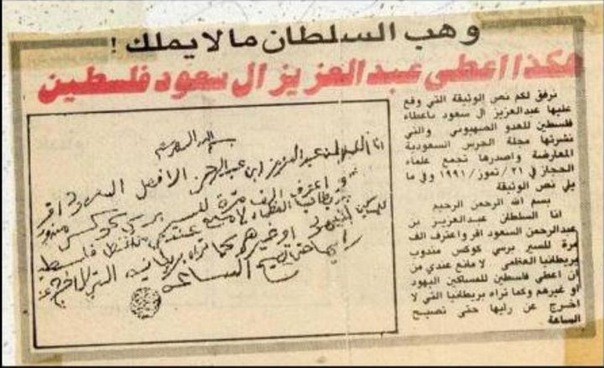 وهب السلطان مالايملك !
هكذا اعطى عبدالعزيز ال سعود فلسطين
نرفق لكم نص الوثيقة التي وقع
عليها عبدالعزيز ال سعود باعطاء
فلسطين للعدو الصهيوني والتي
نشرتها مجلة الحرس السعودية
المعارضة واصدرها تجمع علماء
الحجاز في ٢١/تموز/١٩٩١ وفي ما
يلي نص الوثيقة
بسم الله الرحمن الرحيم
انا السلطان عبدالعزيز بن
عبدالرحمن السعود اقر واعترف الف
مرة للسير برسي كوكس مندوب
بريطانيا العظمى لا مانع عندي من
ان اعطي فلسطين للمساكين اليهود
او غيرهم وكما تراه بريطانيا التي لا
اخرج عن رايها حتى تصيح
الساعة
انا السلطان عبد العزيز ابن عبد الرحمن الفيصل السعود اقر
و اعترف الف مرة للسير برسي كوكس مندوب
بريطانيا العظمى لا مانع عندي فلسطين
او غيرهم كما تراه بريطانيا التي لا اخرج عن
رايها حتى تصيح الساعه